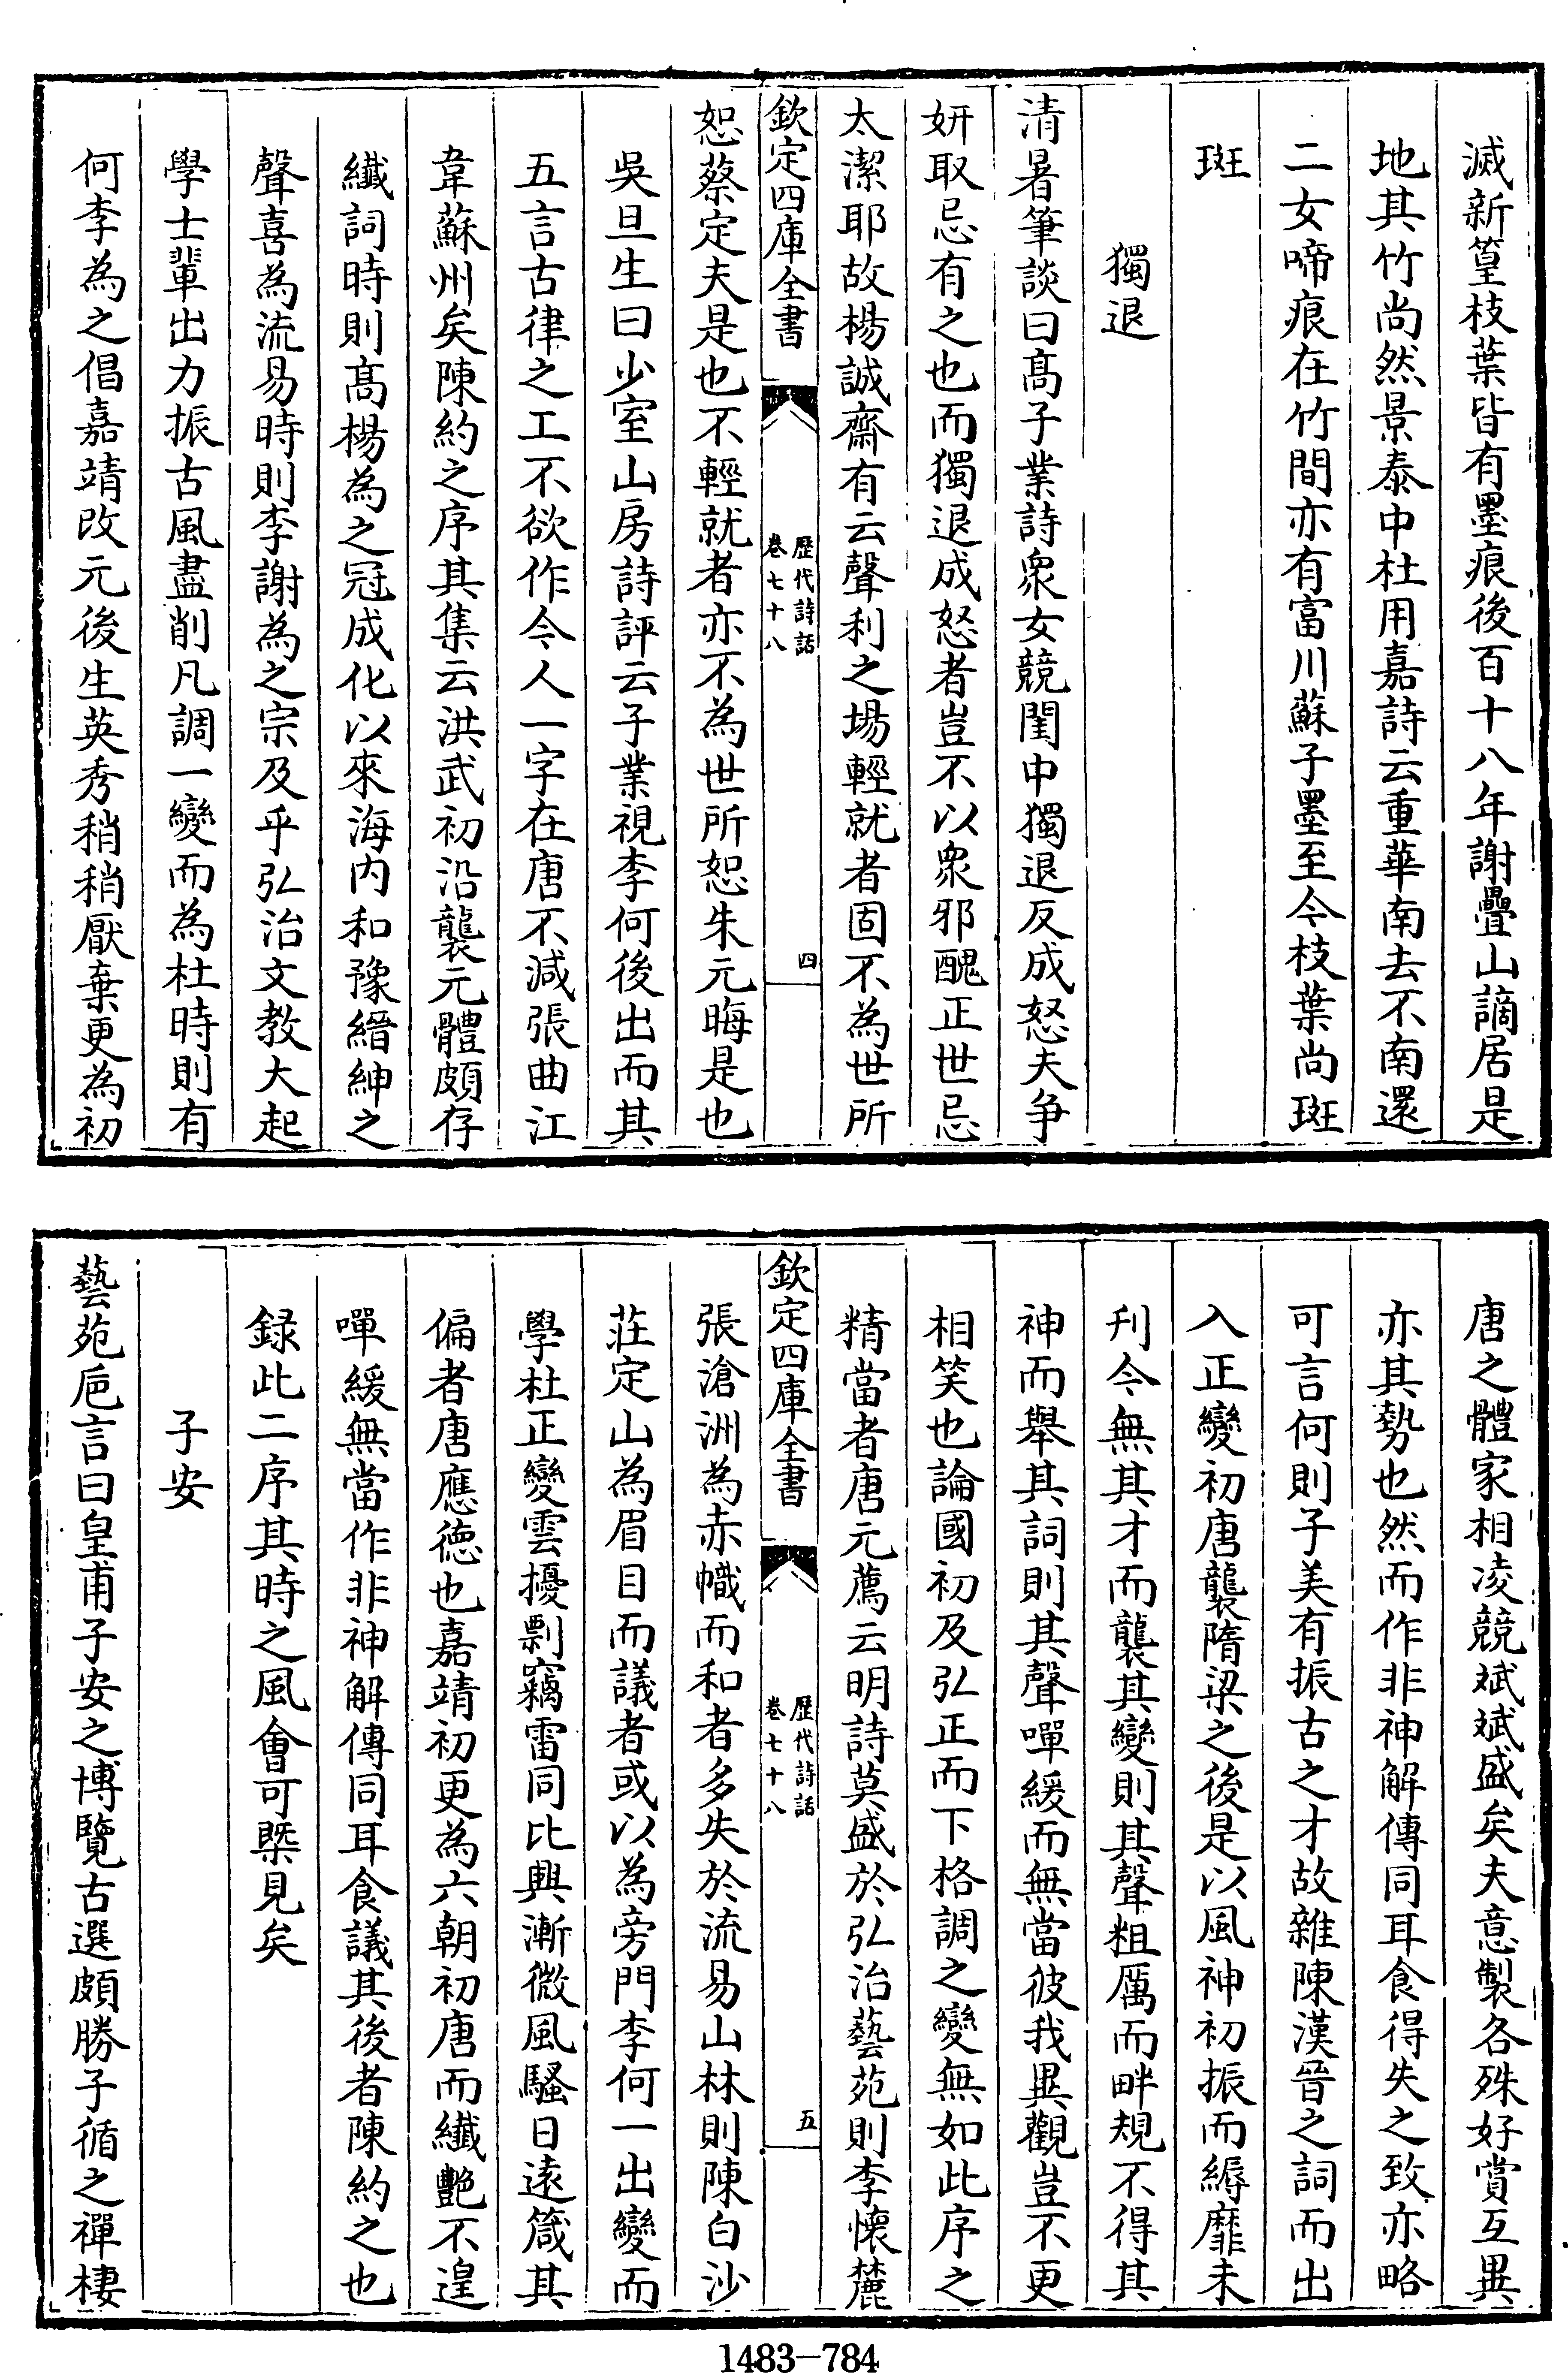 滅新篁枝葉皆有墨痕後百十八年謝疊山謫居是
地其竹尚然景泰中杜用嘉詩云重華南去不南還
二女啼痕在竹間亦有富川蘇子墨至今枝葉尚斑
斑
獨退
清暑筆談曰髙子業詩衆女競閨中獨退反成怒夫争
妍取忌有之也而獨退成怒者豈不以衆邪醜正世忌
太潔耶故楊誠齋有云聲利之場輕就者固不為世所
欽定四庫全書
歷代詩話
卷七十八
四
恕蔡定夫是也不輕就者亦不為世所恕朱元晦是也
吳旦生曰少室山房詩評云子業視李何後出而其
五言古律之工不欲作今人一字在唐不減張曲江
韋蘇州矣陳約之序其集云洪武初沿襲元體頗存
纖詞時則髙楊為之冠成化以來海内和豫縉紳之
聲喜為流易時則李謝為之宗及乎弘治文教大起
學士輩出力振古風盡削凡調一變而為杜時則有
何李為之倡嘉靖改元後生英秀稍稍厭棄更為初
唐之體家相凌競斌斌盛矣夫意製各殊好賞互異
亦其勢也然而作非神解傳同耳食得失之致亦略
可言何則子美有振古之才故雜陳漢晉之詞而出
入正變初唐襲隋梁之後是以風神初振而縟靡未
刋今無其才而襲其變則其聲粗厲而畔規不得其
神而舉其詞則其聲嘽緩而無當彼我異觀豈不更
相笑也論國初及弘正而下格調之變無如此序之
精當者唐元薦云明詩莫盛於弘治藝苑則李懷麓
欽定四庫全書
歷代詩話
卷七十八
五
張滄洲為赤幟而和者多失於流易山林則陳白沙
莊定山為眉目而議者或以為旁門李何一出變而
學杜正變雲擾剽竊雷同比興漸微風騷日逺箴其
偏者唐應徳也嘉靖初更為六朝初唐而纖艷不逞
嘽緩無當作非神解傳同耳食議其後者陳約之也
録此二序其時之風會可槩見矣
子安
藝苑巵言曰皇甫子安之博覽古選頗勝子循之禪棲
1483-784